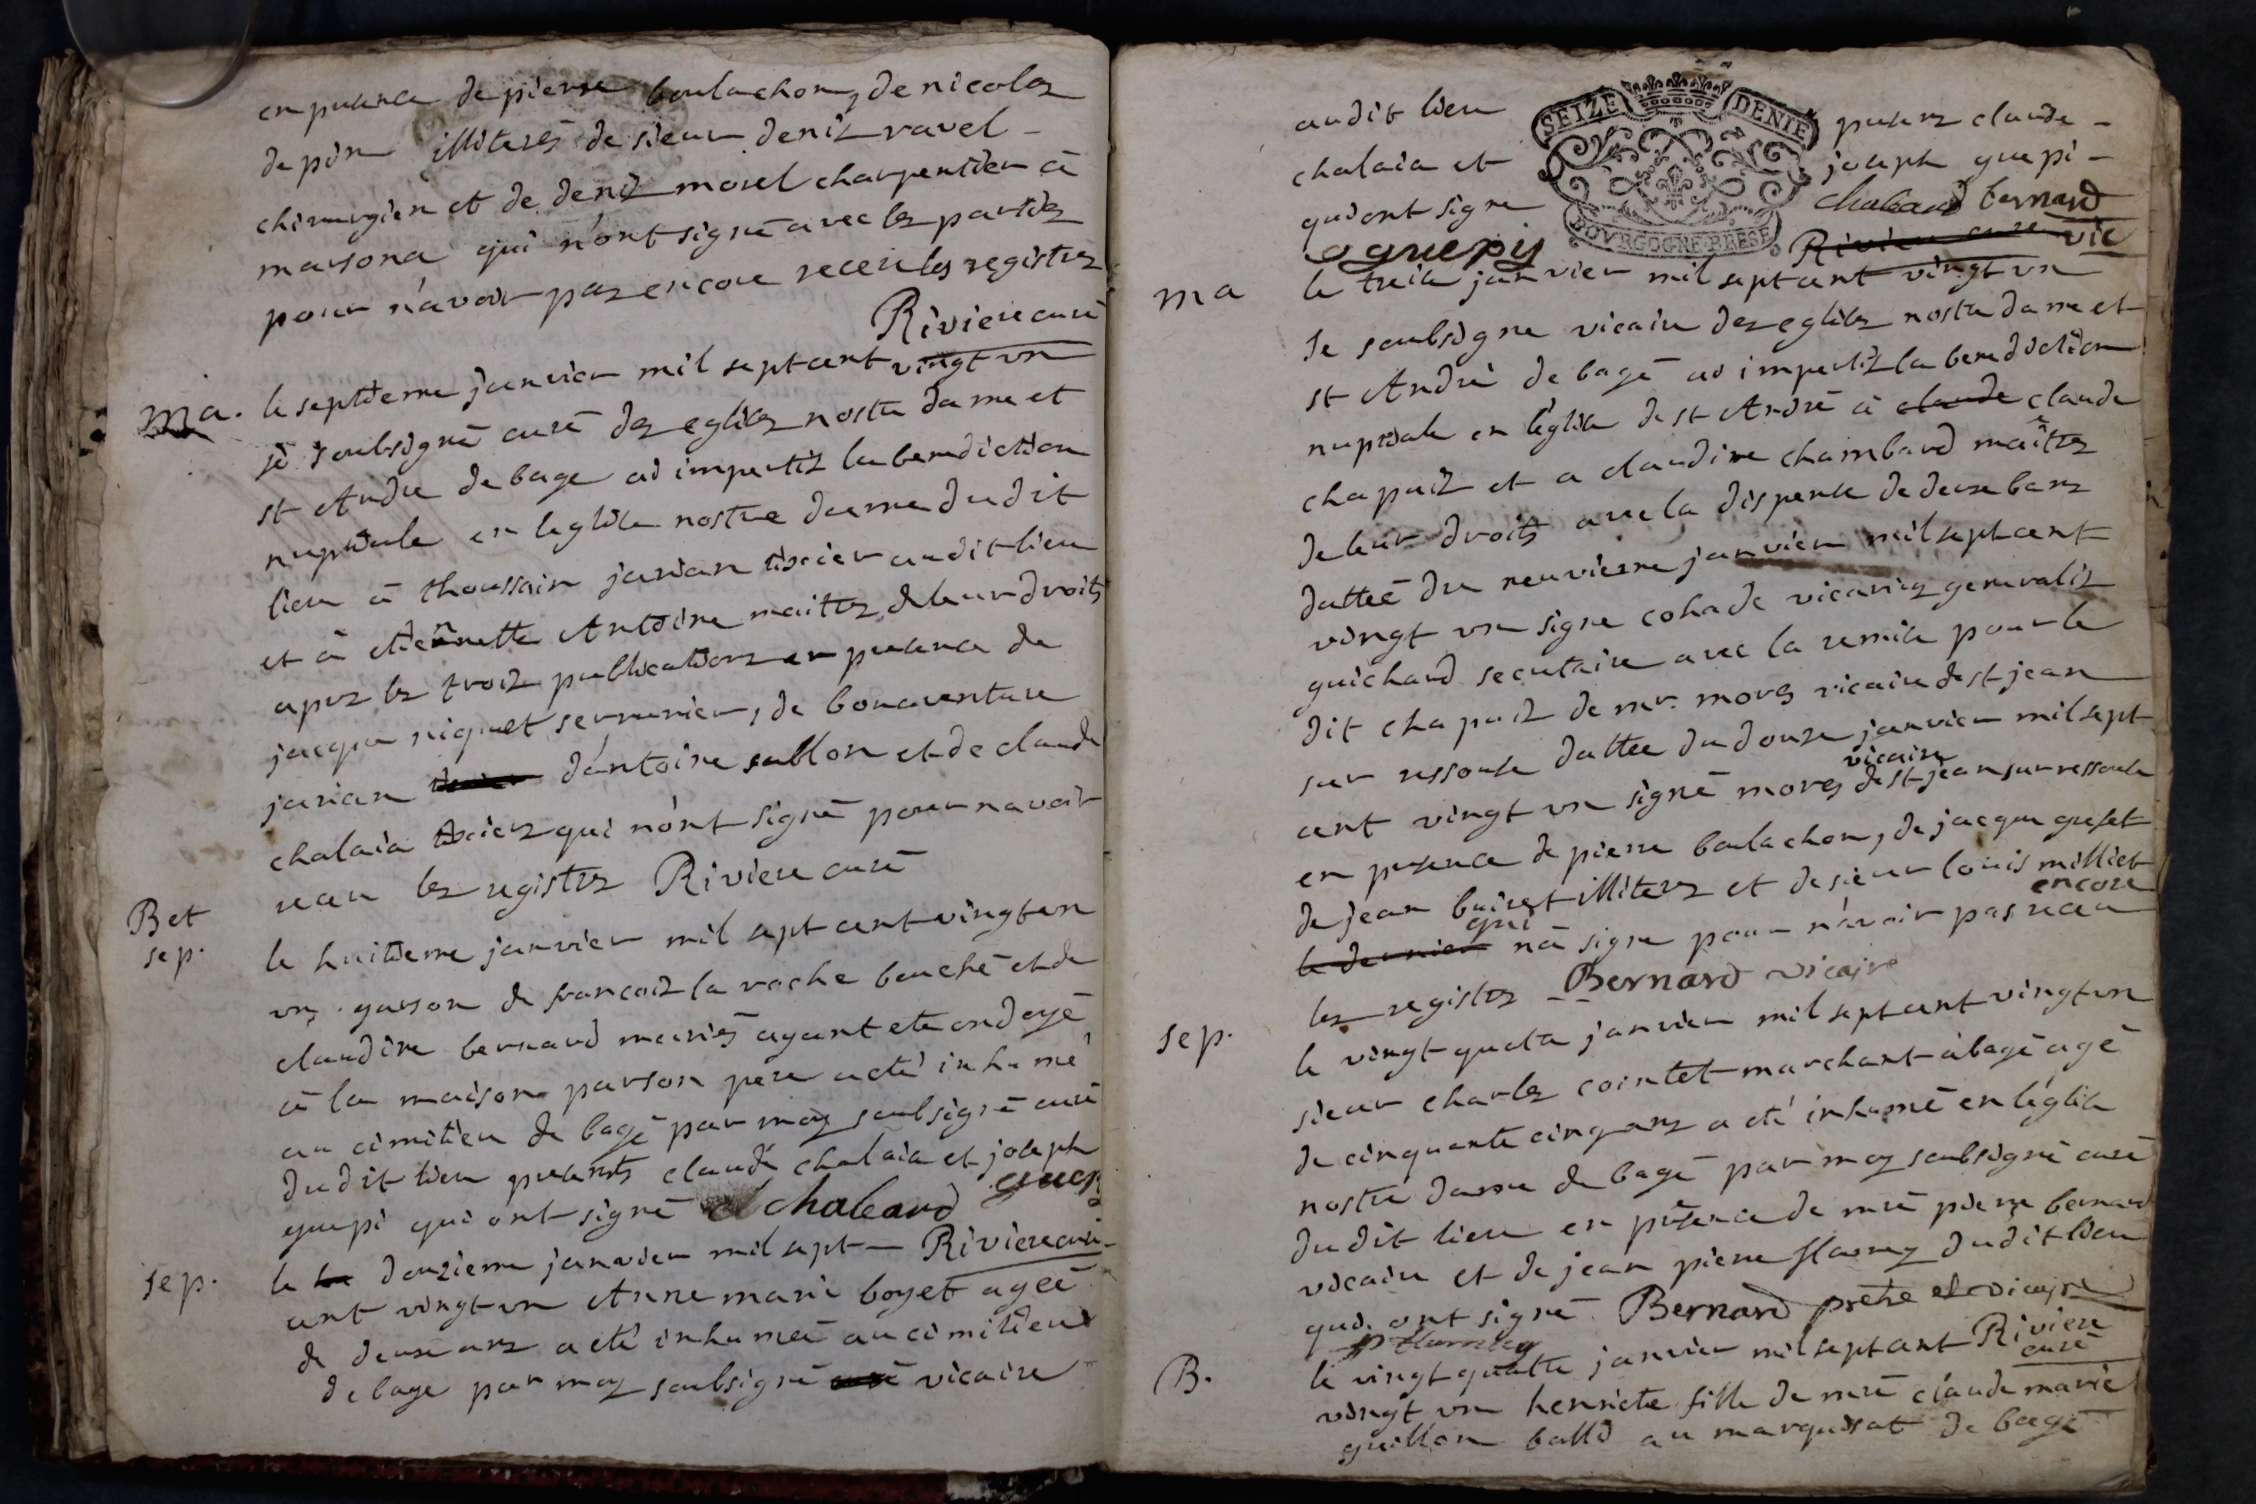 en presence de pierre boulachon, de nicolas
depin illiterés de sieur deniz ravel -
chirurgien et de deniz morel charpentier à
marsona qui n'ont signé avec les parties
pour n'avoir pas encore receu les registres
Riviere curé
ma. le septieme janvier mil sept cent vingt un
je soubsigné curé des eglises nostre dame et
st Andre de bage ai imperti la benediction
nuptiale en leglise nostre dame dudit
lieu à thoussain janian tixier audit lieu
et à etiennette Antoine maitres de leur droits
apres les trois publications en presence de
jacque niquet serrurier, de bonaventure
janian d'antoine sablon et de claude
chalaia tixiers qui n'ont signé pour navoir
receu les registres Riviere curé
B et
sep. le huitieme janvier mil sept cent vingt un
un garson de francois la roche bouché et de
claudine bernard mariés ayant ete ondoyé
à la maison par son pere a eté inhumé
au cimitiere de bagé par moy soubsigné curé
dudit lieu presents claude chalaia et joseph
guepi qui ont signé chaleard guepy
sep. le douzieme janvier mil sept - Riviere curé
cent vingt un Anne marie boyet ageé
de deux ans a eté inhumeé au cimitiere
de bage par moy soubsigné vicaire
audit lieu presens claude -
chalaia et joseph guepi -
qui ont signe chaleard bernard
guepy Riviere curé vic
SEIZE DENIE
BOURGOGNE BRESE
ma le treize janvier mil sept cent vingt un
Je soubsigne vicaire des eglises nostre dame et
st André de bagé ai imperti la benediction
nuptiale en léglise de st André à claude claude
chapuiz et a claudine chambard maîtres
de leur droits avec la dispense de deux bans
datteé du neuvieme janvier mil sept cent
vingt un signe cohade vicarius generalis
guichard secretaire avec la remise pour le
dit chapuiz de mr. morez vicaire de st jean
sur ressouse dattee du douze janvier mil sept
cent vingt un signé morez vicaire de st jean sur ressouse
en presence de pierre boulachon, de jacque grefet
de jean buiret illiteres et de sieur louis milliet
le dernier qui n'a signe pour n'avoir pas encore receu
les registres -- Bernard vicaire
sep. le vingt quatre janvier mil sept cent vingt un
sieur charles cointet marchant à bagé agé
de cinquante cinq ans a eté inhumé en léglise
nostre dame de bagé par moy soubsigné curé
dudit lieu en présence de mre pierre bernard
vicaire et de jean pierre dudit lieu
qui ont signé Bernard prêtre et vicaire
B. le vingt quatre janvier mil sept cent Riviere curé
vingt un henriete fille de mre claude marie
guillon balli au marquisat de bagé